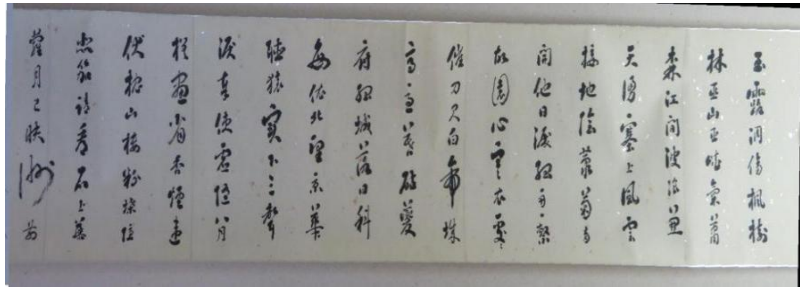 玉露凋傷楓樹
林巫山巫峽氣蕭
森江間波浪兼
天湧塞上風雲
接地陰叢菊兩
開他日淚孤舟一繫
故園心寒衣處々
催刀尺白帝城
高急暮砧夔
府孤城落日斜
每依北望京華
聽猿實下三聲
淚奉使虛隨八月
槎畫省香爐違
伏枕山樓粉堞隱
悲笳請看石上藤
蘿月已映洲前